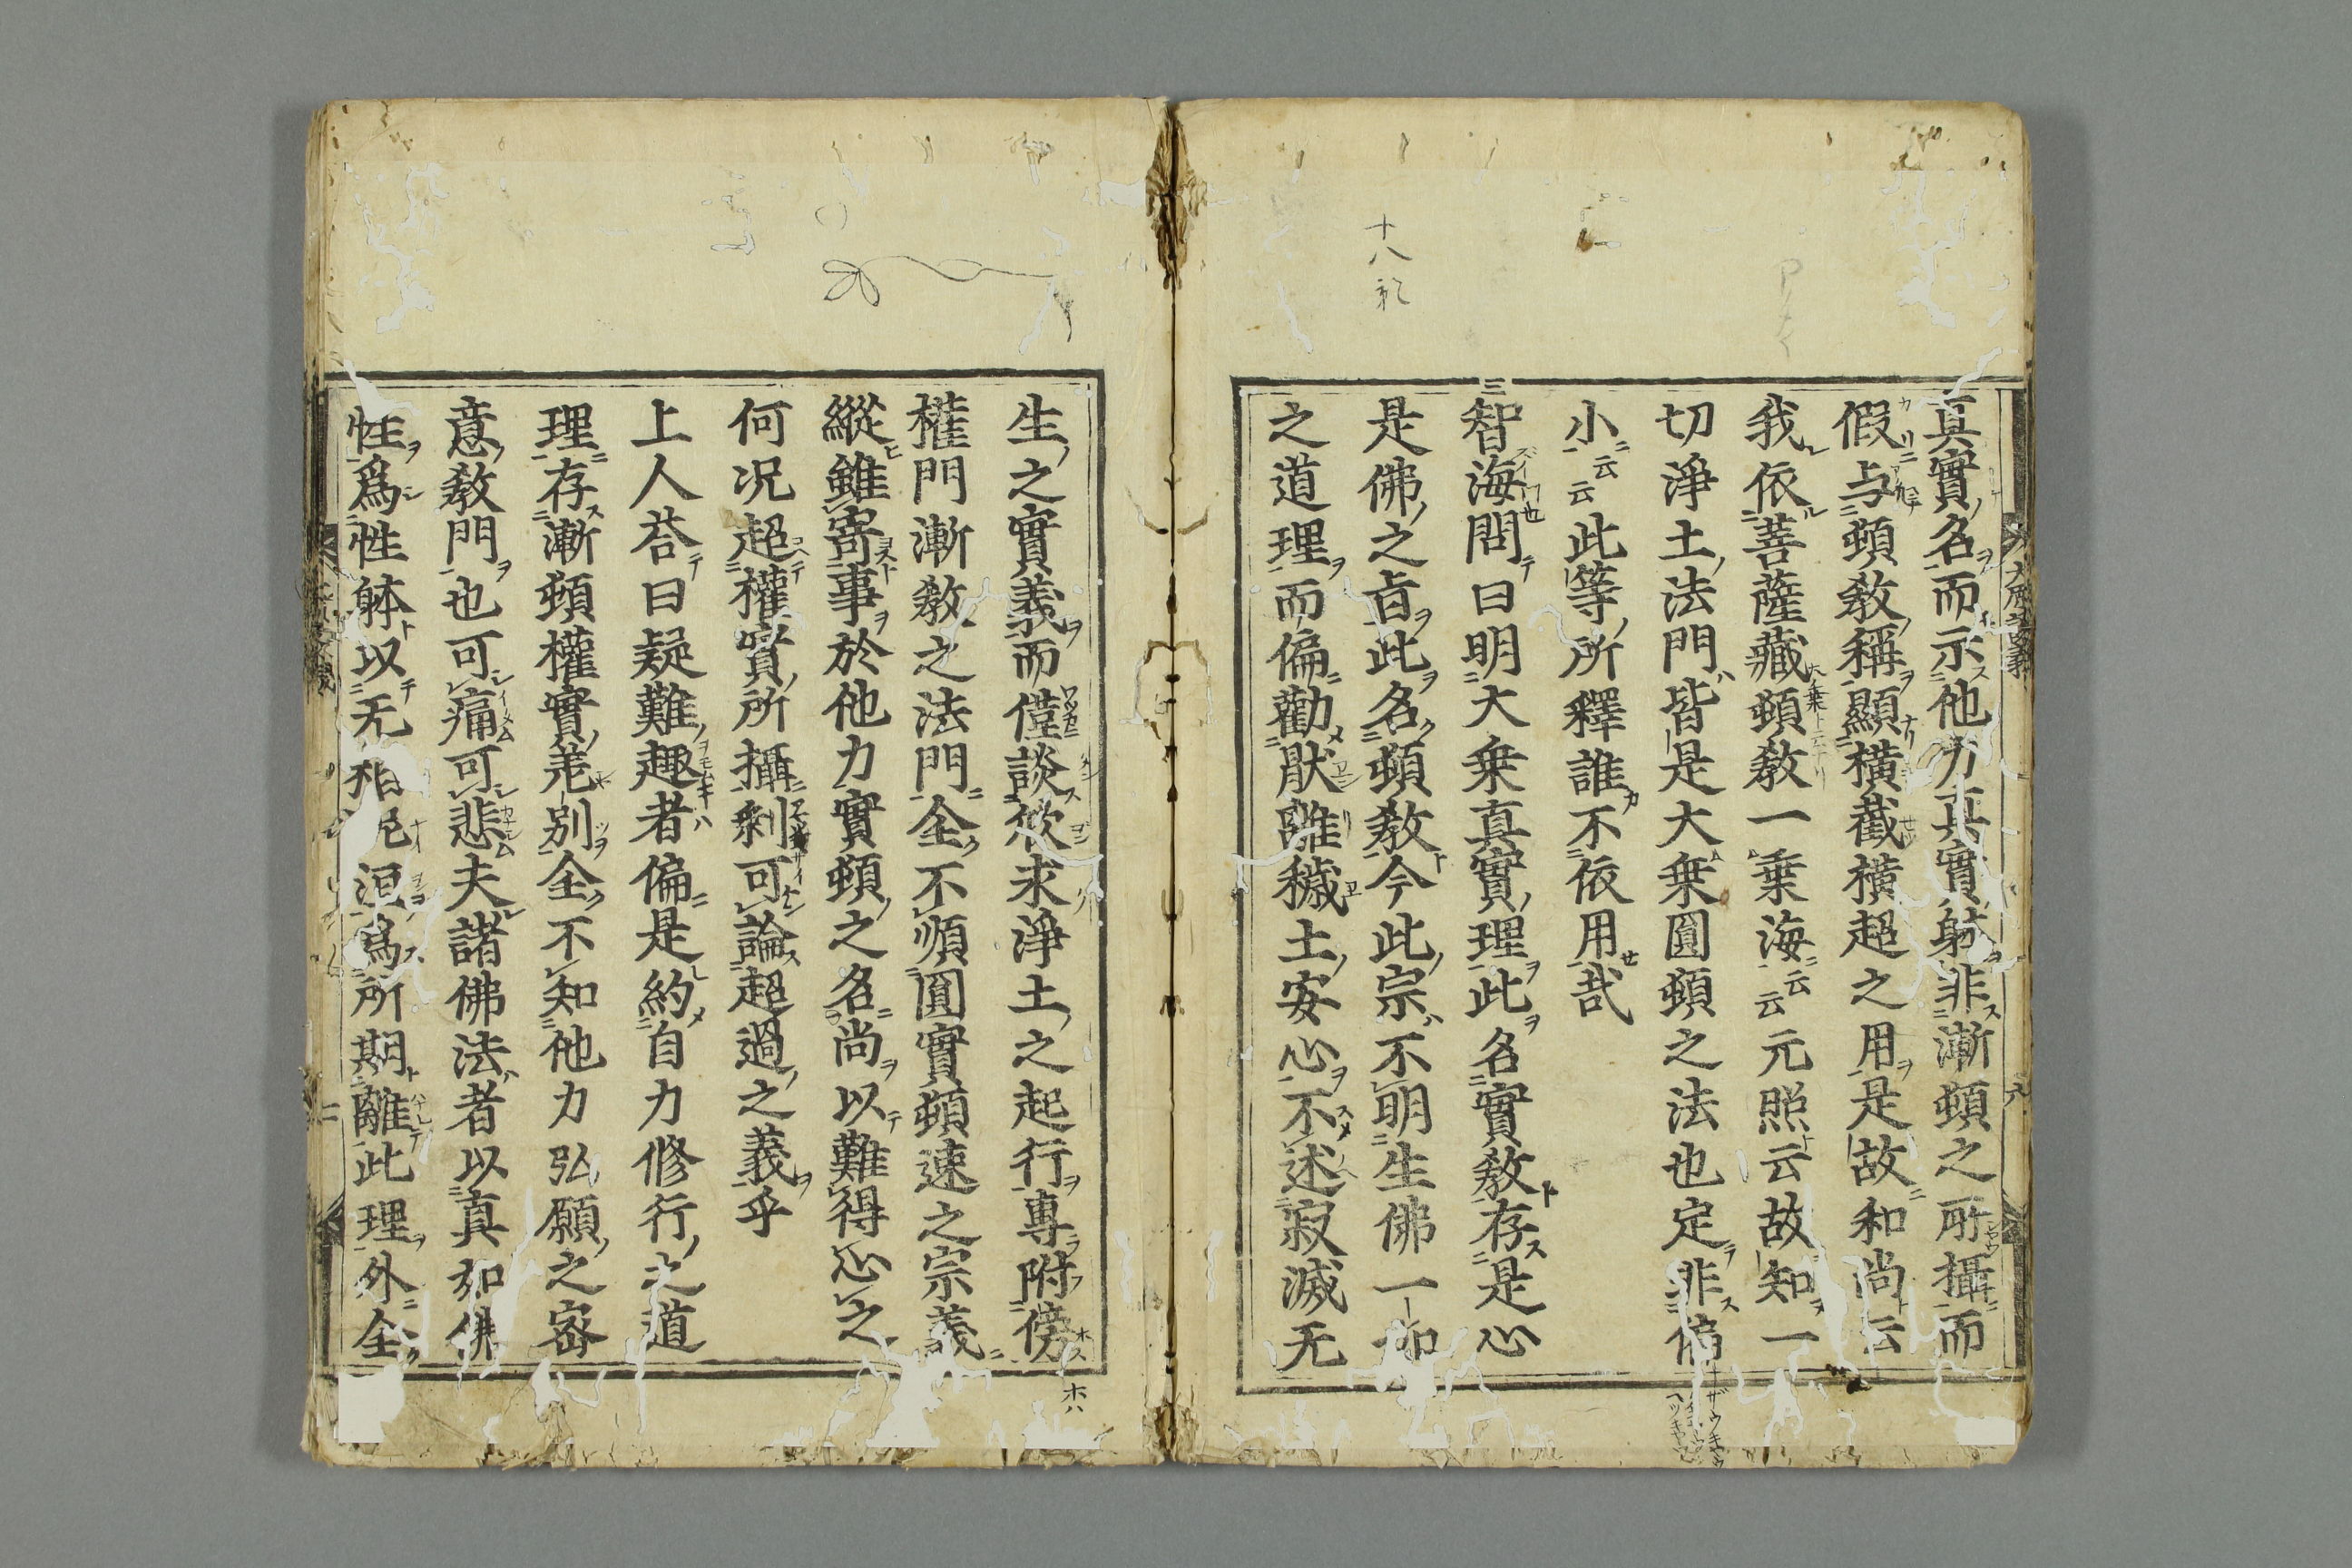 真實名而示他力真實躰非漸頓之所攝而
假与頓教稱顯橫截橫超之用是故和尚云
我依菩薩藏頓教一乗海云云元照云故知一
切淨土法門皆是大乗圓頓之法也定非偏
小云云此等所釋誰不依用哉
三智海問曰明大乗真實理此名實教存是心
是佛之旨此名頓教今此宗不明生佛一如
之道理而偏勸猒離穢土安心不述寂滅无
生之實義而僅談欣求淨土之起行專附傍
權門漸教之法門全不順圓實頓速之宗義
縱雖寄事於他力實頓之名尚以難得心之
何况超權實所攝剩可論超過之義乎
上人荅曰疑難趣者偏是約自力修行之道
理存漸頓權實差別全不知他力弘願之密
意教門也可痛可悲夫諸佛法者以真如佛
性爲性躰以无相泥洹爲所期離此理外全
十八